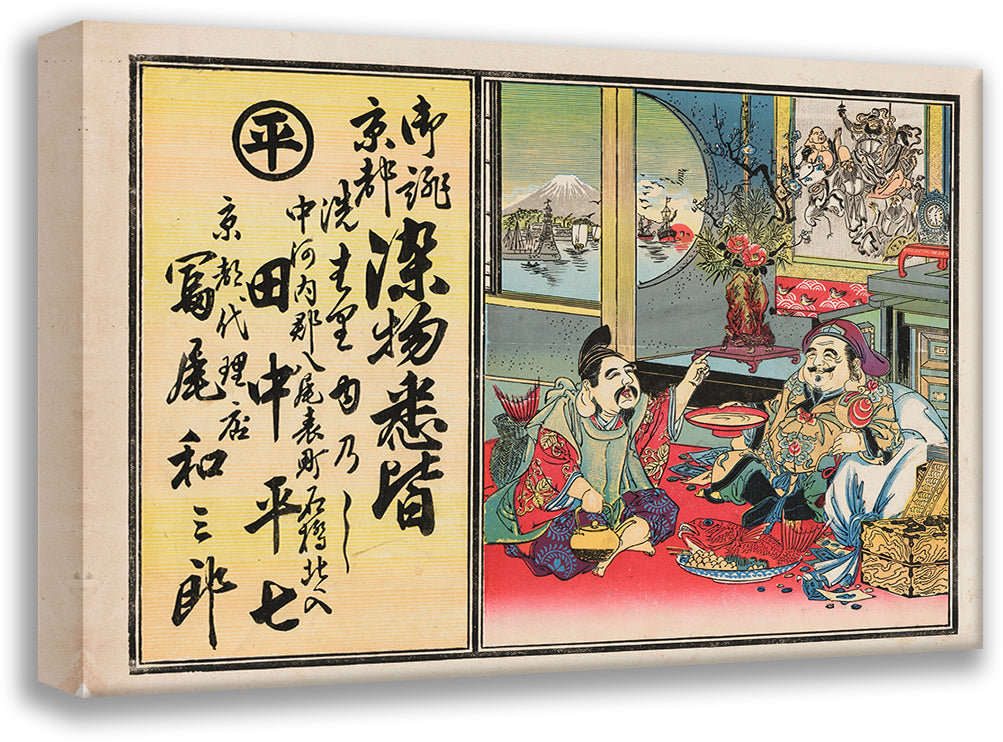 御誂
京都
染物悉皆
洗
中河内郡八尾表町石橋北入
㊥平
田中平七
京都代理店
冨尾和三郎